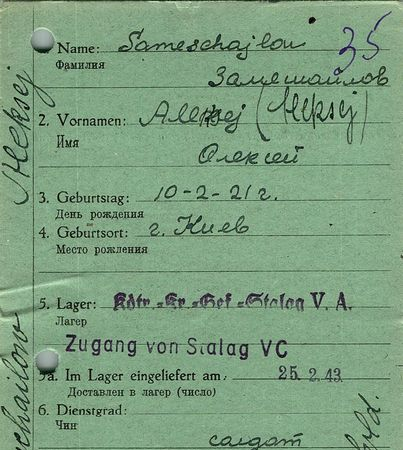 Name: Sameschajlow 35
Фамилия
Замешайлов
2. Vornamen: Aleksej (Aleksej)
Имя
Олексей
3. Geburtstag: 10-2-21 г.
День рождения
4. Geburtsort: г. Киев
Место рождения
5. Lager: Kdtr.-Kr.-Gef.-Stalag V. A.
Лагер
Zugang von Stalag VC
5a. Im Lager eingeliefert am: 25. 2. 43.
Доставлен в лагер (число)
6. Dienstgrad:
Чин
солдат
Aleksej